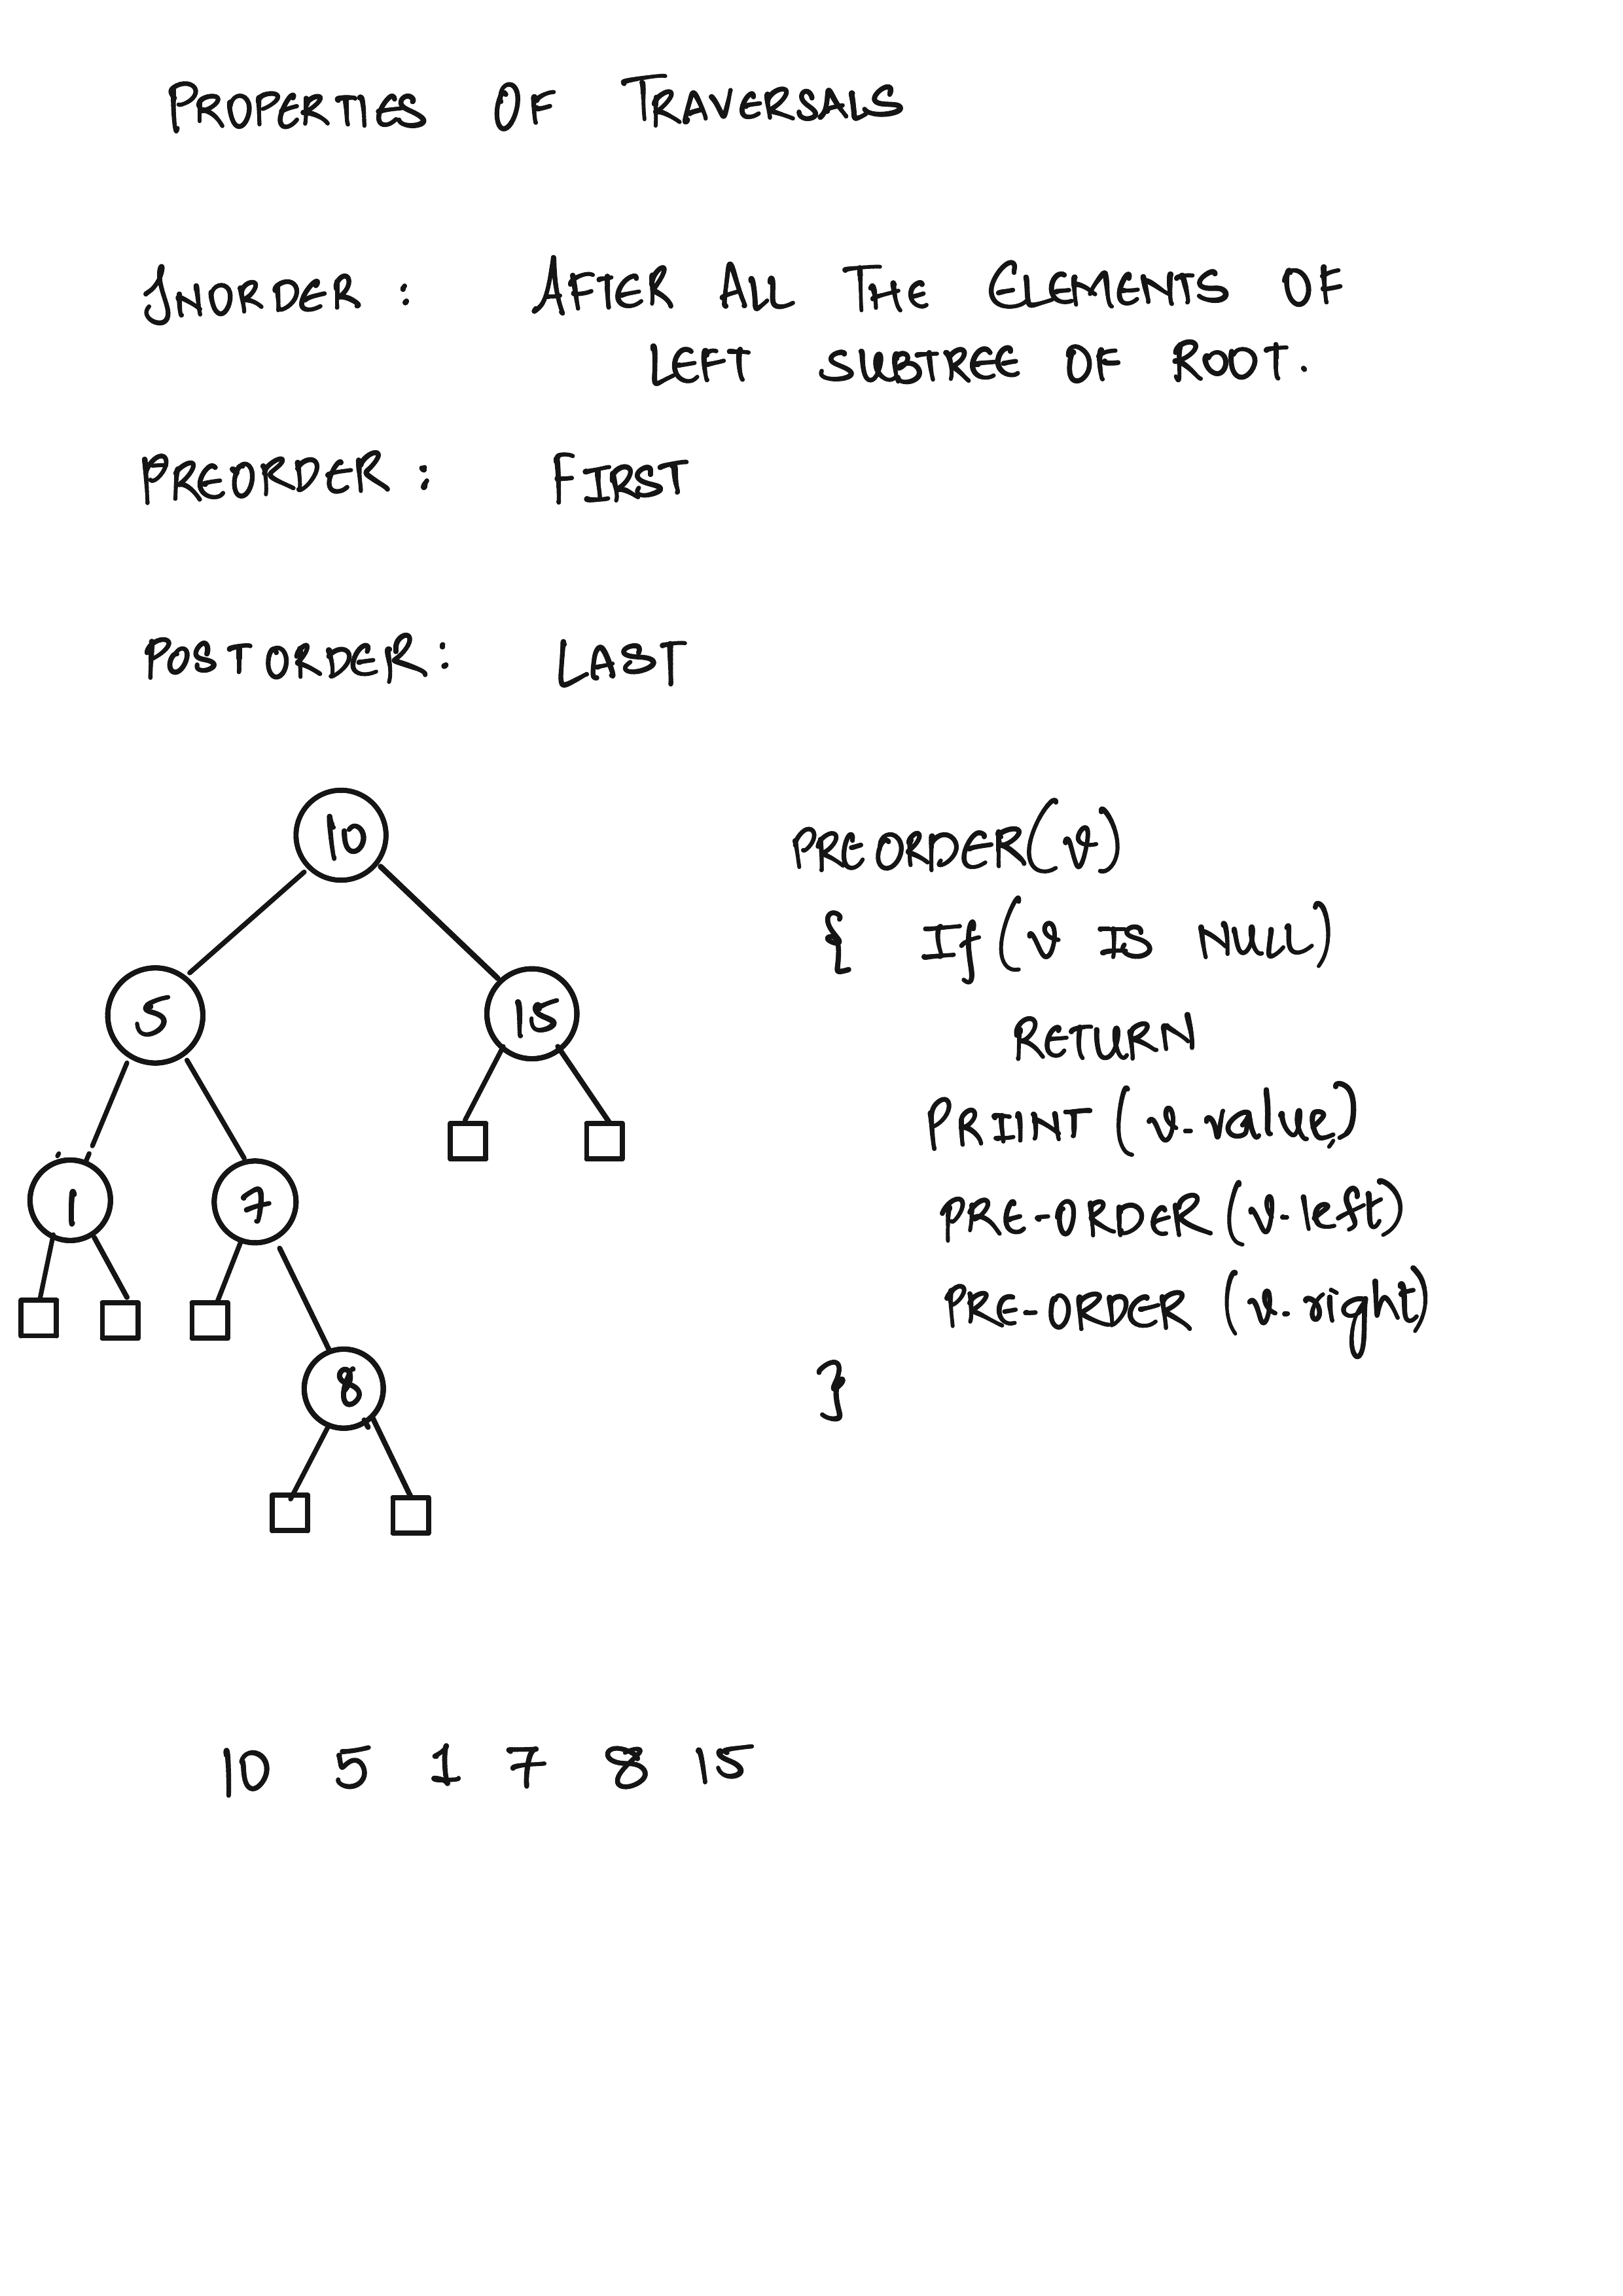 PROPERTIES OF TRAVERSALS
INORDER : AFTER ALL THE ELEMENTS OF
LEFT SUBTREE OF ROOT.
PREORDER : FIRST
POSTORDER : LAST
10
5 15
1 7
8
PREORDER(v)
{ If (v IS NULL)
RETURN
PRIINT (v.value)
PRE-ORDER (v.left)
PRE-ORDER (v.right)
}
10 5 1 7 8 15